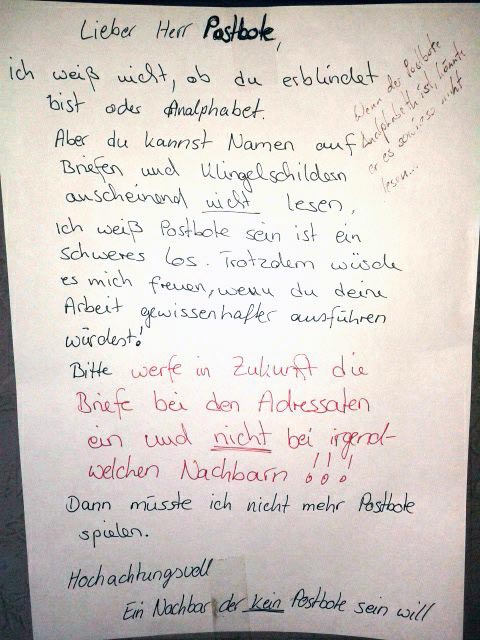 Lieber Herr Postbote,
ich weiß nicht, ob du erblindet
bist oder Analphabet.
Aber du kannst Namen auf
Briefen und Klingelschildern
anscheinend nicht lesen,
Ich weiß Postbote sein ist ein
schweres Los. Trotzdem würde
es mich freuen, wenn du deine
Arbeit gewissenhafter ausführen
würdest!
Bitte werfe in Zukunft die
Briefe bei den Adressaten
ein und nicht bei irgend-
welchen Nachbarn !!!
Dann müsste ich nicht mehr Postbote
spielen.
Hochachtungsvoll
Ein Nachbar der kein Postbote sein will
Wenn der Postbote
Analphabeth ist, könnte
er es sowieso nicht
lesen...